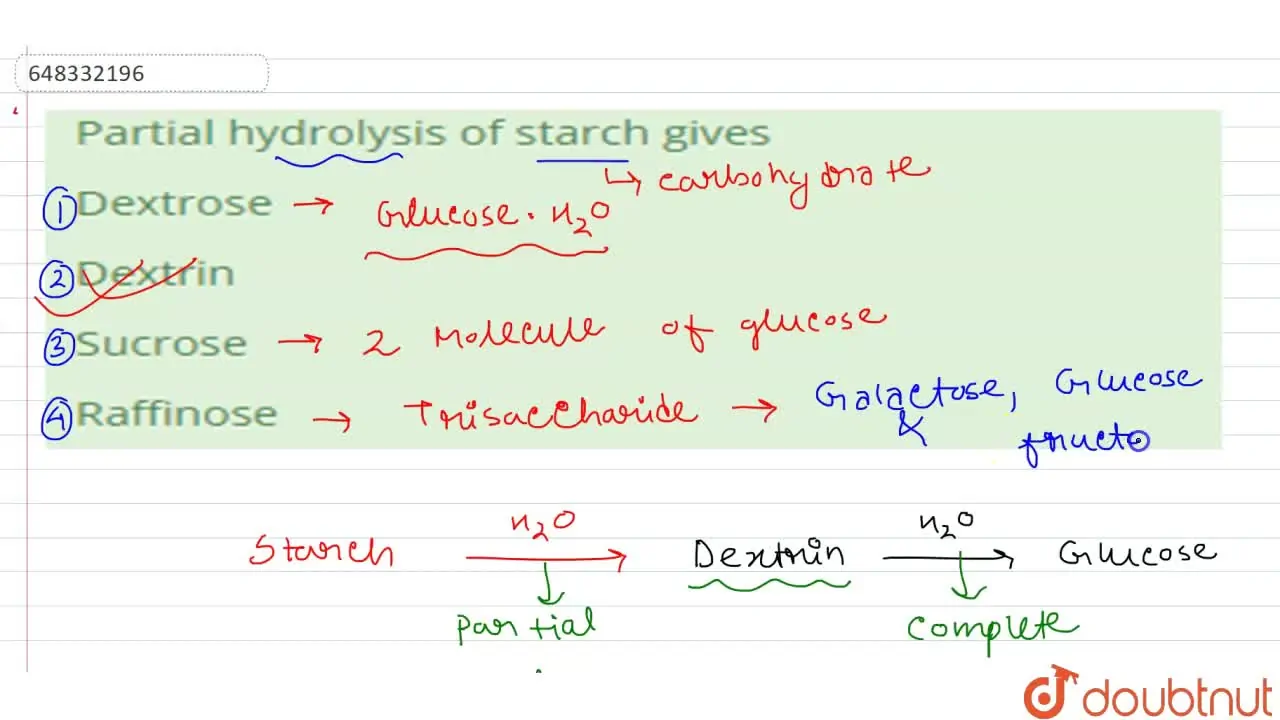 648332196
Partial hydrolysis of starch gives
↳ carbohydrate
① Dextrose → Glucose . H2O
② Dextrin
③ Sucrose → 2 Molecule of glucose
④ Raffinose → Trisaccharide → Galactose, Glucose
& fructo
Starch H2O → Dextrin H2O → Glucose
Partial Complete
doubtnut